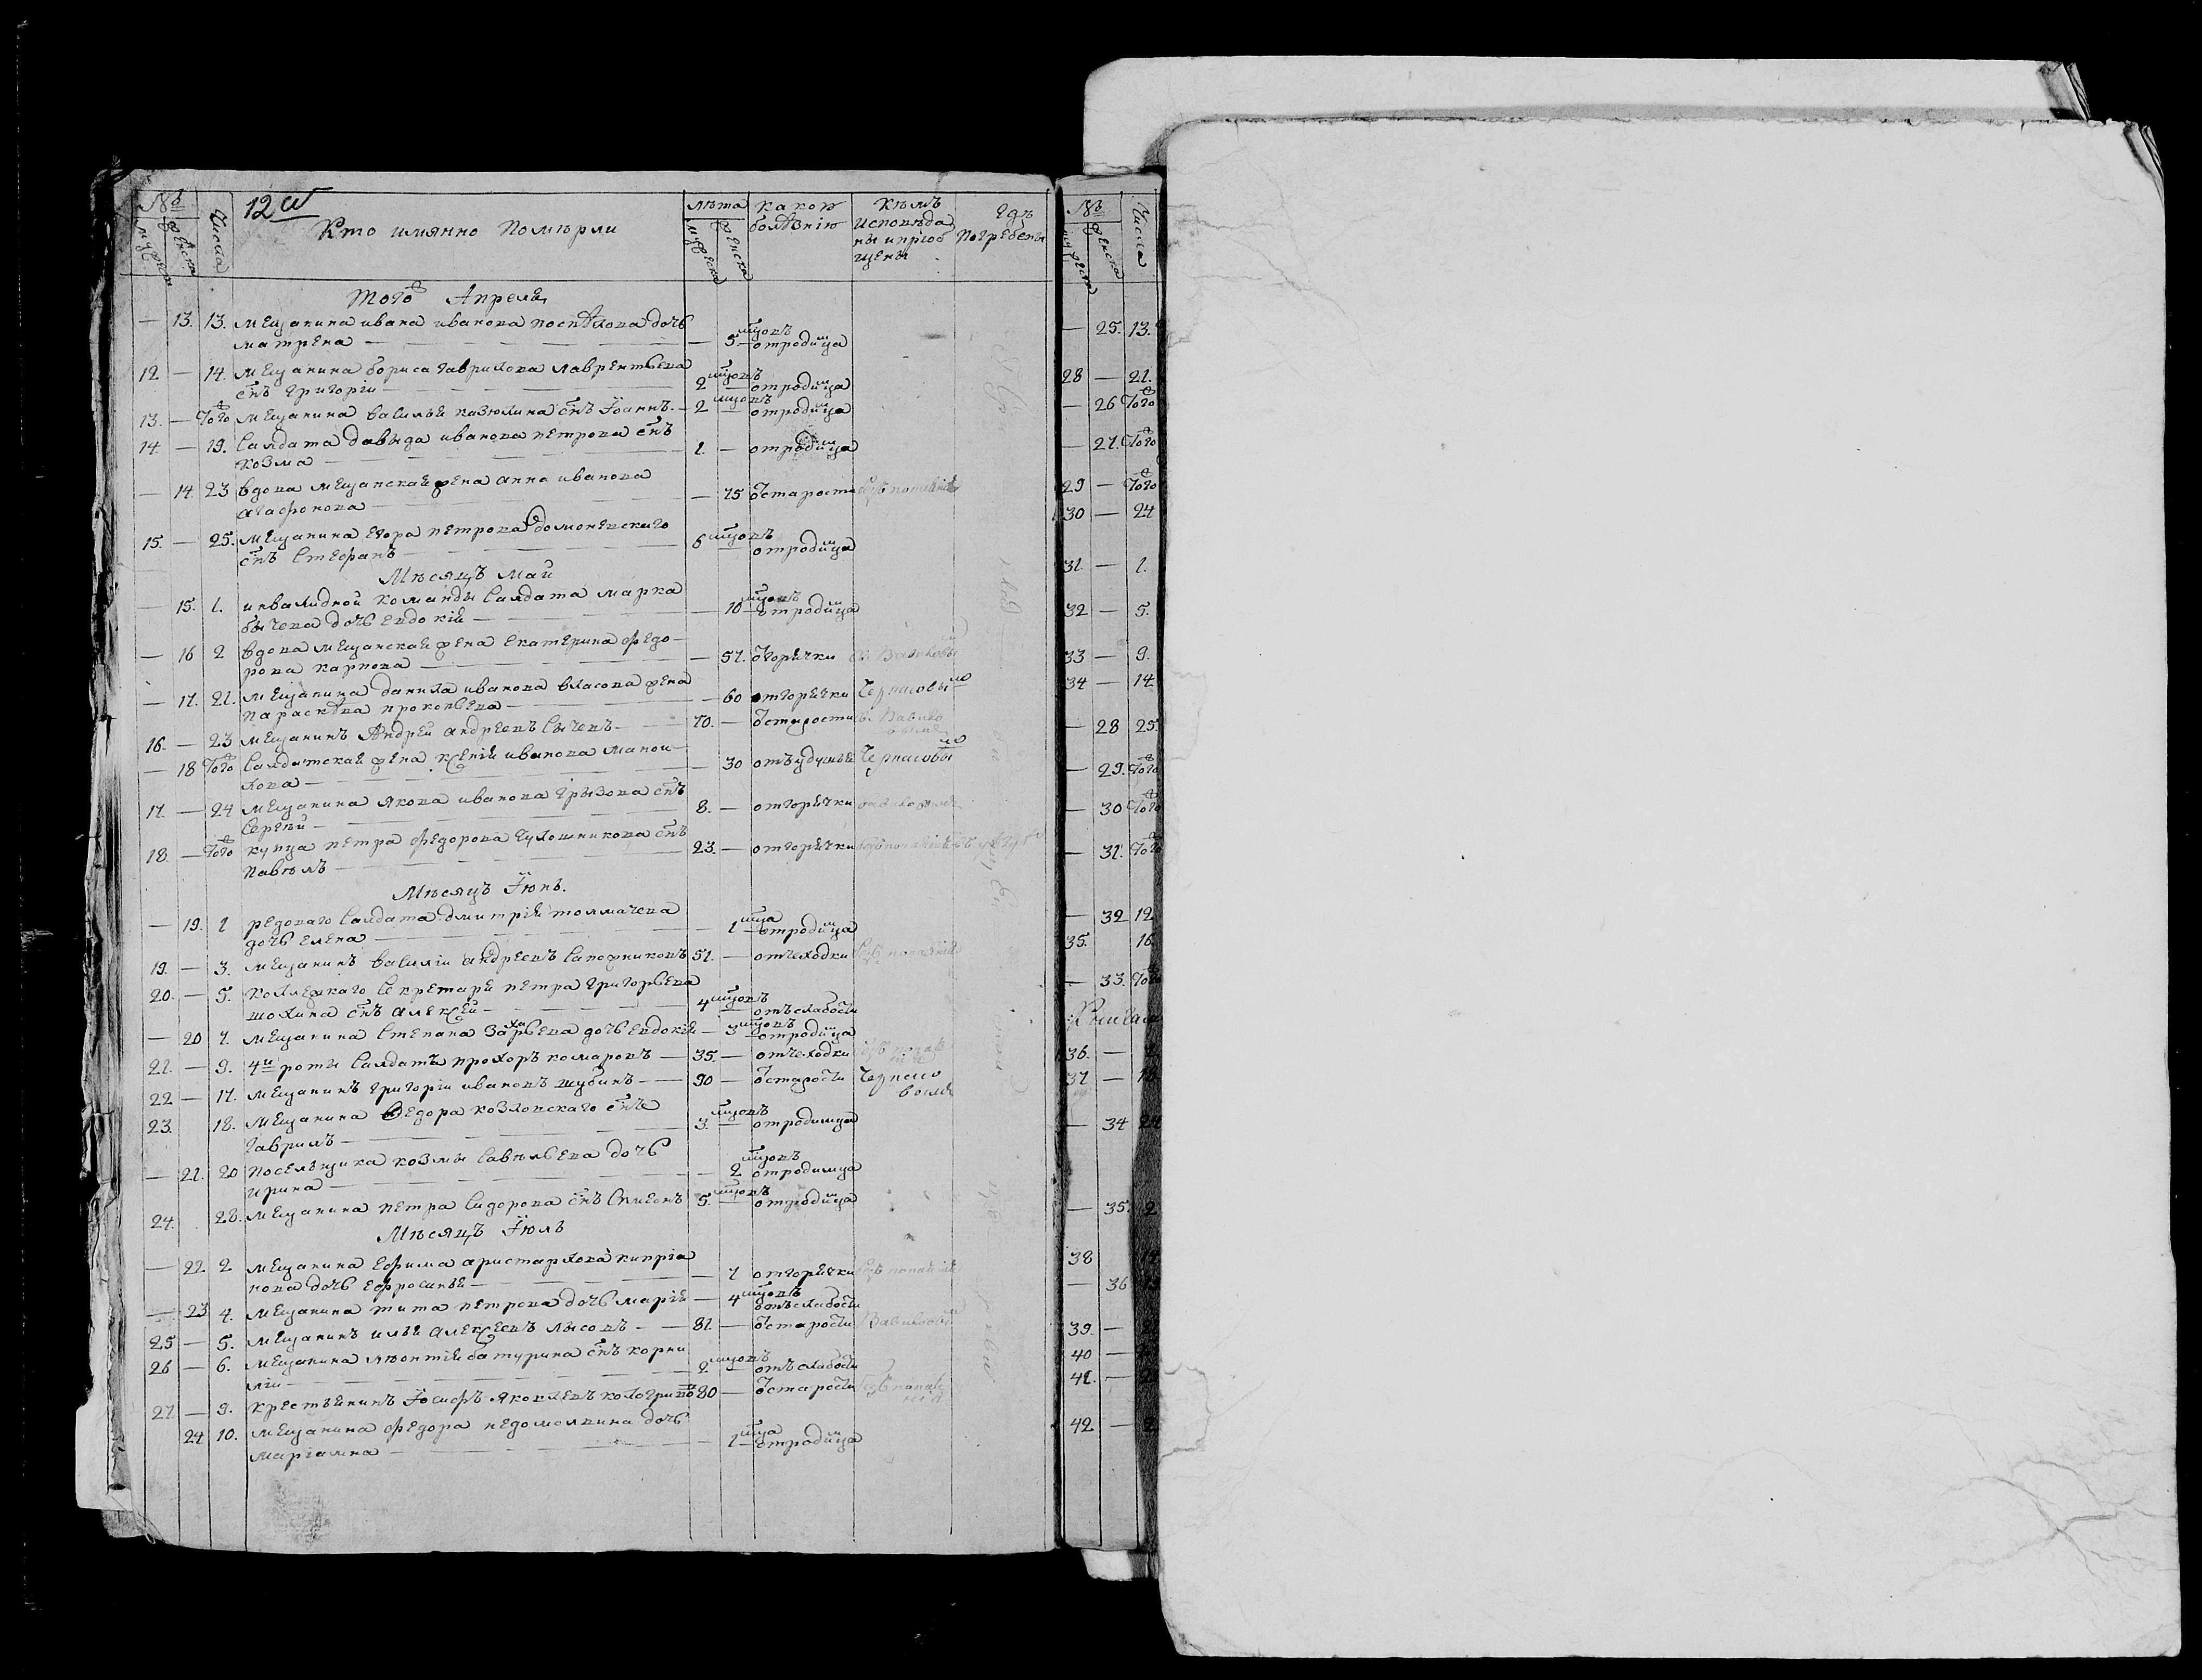 №
мужеска
женска
Числа
12й
Кто имянно Померли
лѣта
мужеска
женска
какою болѣзнію
Кѣмъ Исповѣданы и приобщены
Гдѣ Погребены
Того Апреля
— 13. 13. мещанина ивана иванова поспѣлова дочь
матрена — — 5 мцовъ отродимца
12 — 14. мещанина бориса гаврилова лаврентьева
снъ григорій — 2 мцовъ — отродимца
13. — Того мещанина василья казюлина снъ Іоаннъ. — 2 мцовъ — отродимца
14 — 19. салдата давыда иванова петрова снъ
козма — 1. — отродимца
— 14 23 вдова мещанская жена анна иванова
агафонова — — 75 отстарости
15. — 25. мещанина егора петрова домоневскаго
снъ Стефанъ — 6 мцовъ — отродимца
Мѣсяцъ май
— 15. 1. инвалидной команды салдата марка
бычева дочь евдокія — — 10 мцовъ отродимца
— 16 2 вдова мещанская жена екатерина федо-
рова карпова — — 57. отгорячки
— 17. 21. мещанина данила иванова власова жена
параскѣва прокопьева — — 60 отгорячки
16. — 23 мещанинъ Андрей андреевъ сычевъ — 70. — отстарости
— 18 Того салдатская жена ксенія иванова маной-
лова — — 30 отъудушья
17. — 24 мещанина якова иванова грызова снъ
сергѣй — 8. — отгорячки
18. — Того купца петра федорова
снъ
павелъ — 23. — отгорячки
Мѣсяцъ Іюнь.
— 19. 1 редоваго салдата дмитрія толмачева
дочь елена — — 1 мца отродимца
19. — 3. мещанинъ василій андреевъ сапожниковъ 51. — отчеходки
20. — 5. коллежкаго секретаря петра григорьева
шолина снъ алексей — 4 мцовъ отъслабости
— 20 7. мещанина степана захарьева дочь евдокія — 3 мцовъ отродимца
21. — 9. 4й роты салдатъ прохоръ комаровъ — 35. — отчеходки
22 — 17. мещанинъ григорій ивановъ шубинъ — 90 — отстарости
23. 18. мещанина Федора козловскаго снъ
гаврилъ — 3. мцовъ — отродимца
— 21. 20 посельщика козмы савельева дочь
ирина — — 2 мцовъ отродимца
24. 28. мещанина петра сидорова снъ Симеонъ 5. мцовъ — отродимца
Мѣсяцъ Іюль
— 22. 2 мещанина ефима аристархова кипріа
нова дочь ефросинья — — 7 отгорячки
— 23 4. мещанина тита петрова дочь марія — 4 мцовъ отъслабости
25 — 5. мещанинъ илья алексеевъ лысовъ — 81. — отстарости
26 — 6. мещанина леонтія батурина снъ корни
лій — 2 мцовъ — отъслабости
27. — 9. крестьянинъ Іосифъ яковлевъ кологривовъ 80 — отстарости
24 10. мещанина федора недомолвина дочь
маріамна — — 1 мца отродимца
№
мужеска
женска
Числа
— 25. 13.
28 — 21.
— 26 Того
— 27. Того
29 — Того
30 — 24
31 — 1.
32 — 5.
33 — 9.
34 — 14
— 28 25.
— 29. Того
— 30 Того
— 31. Того
— 32 12.
35. 16.
— 33. Того
36. —
37 — 18
— 34 24
— 35.
38
— 36
39. —
40 —
41. —
42 —